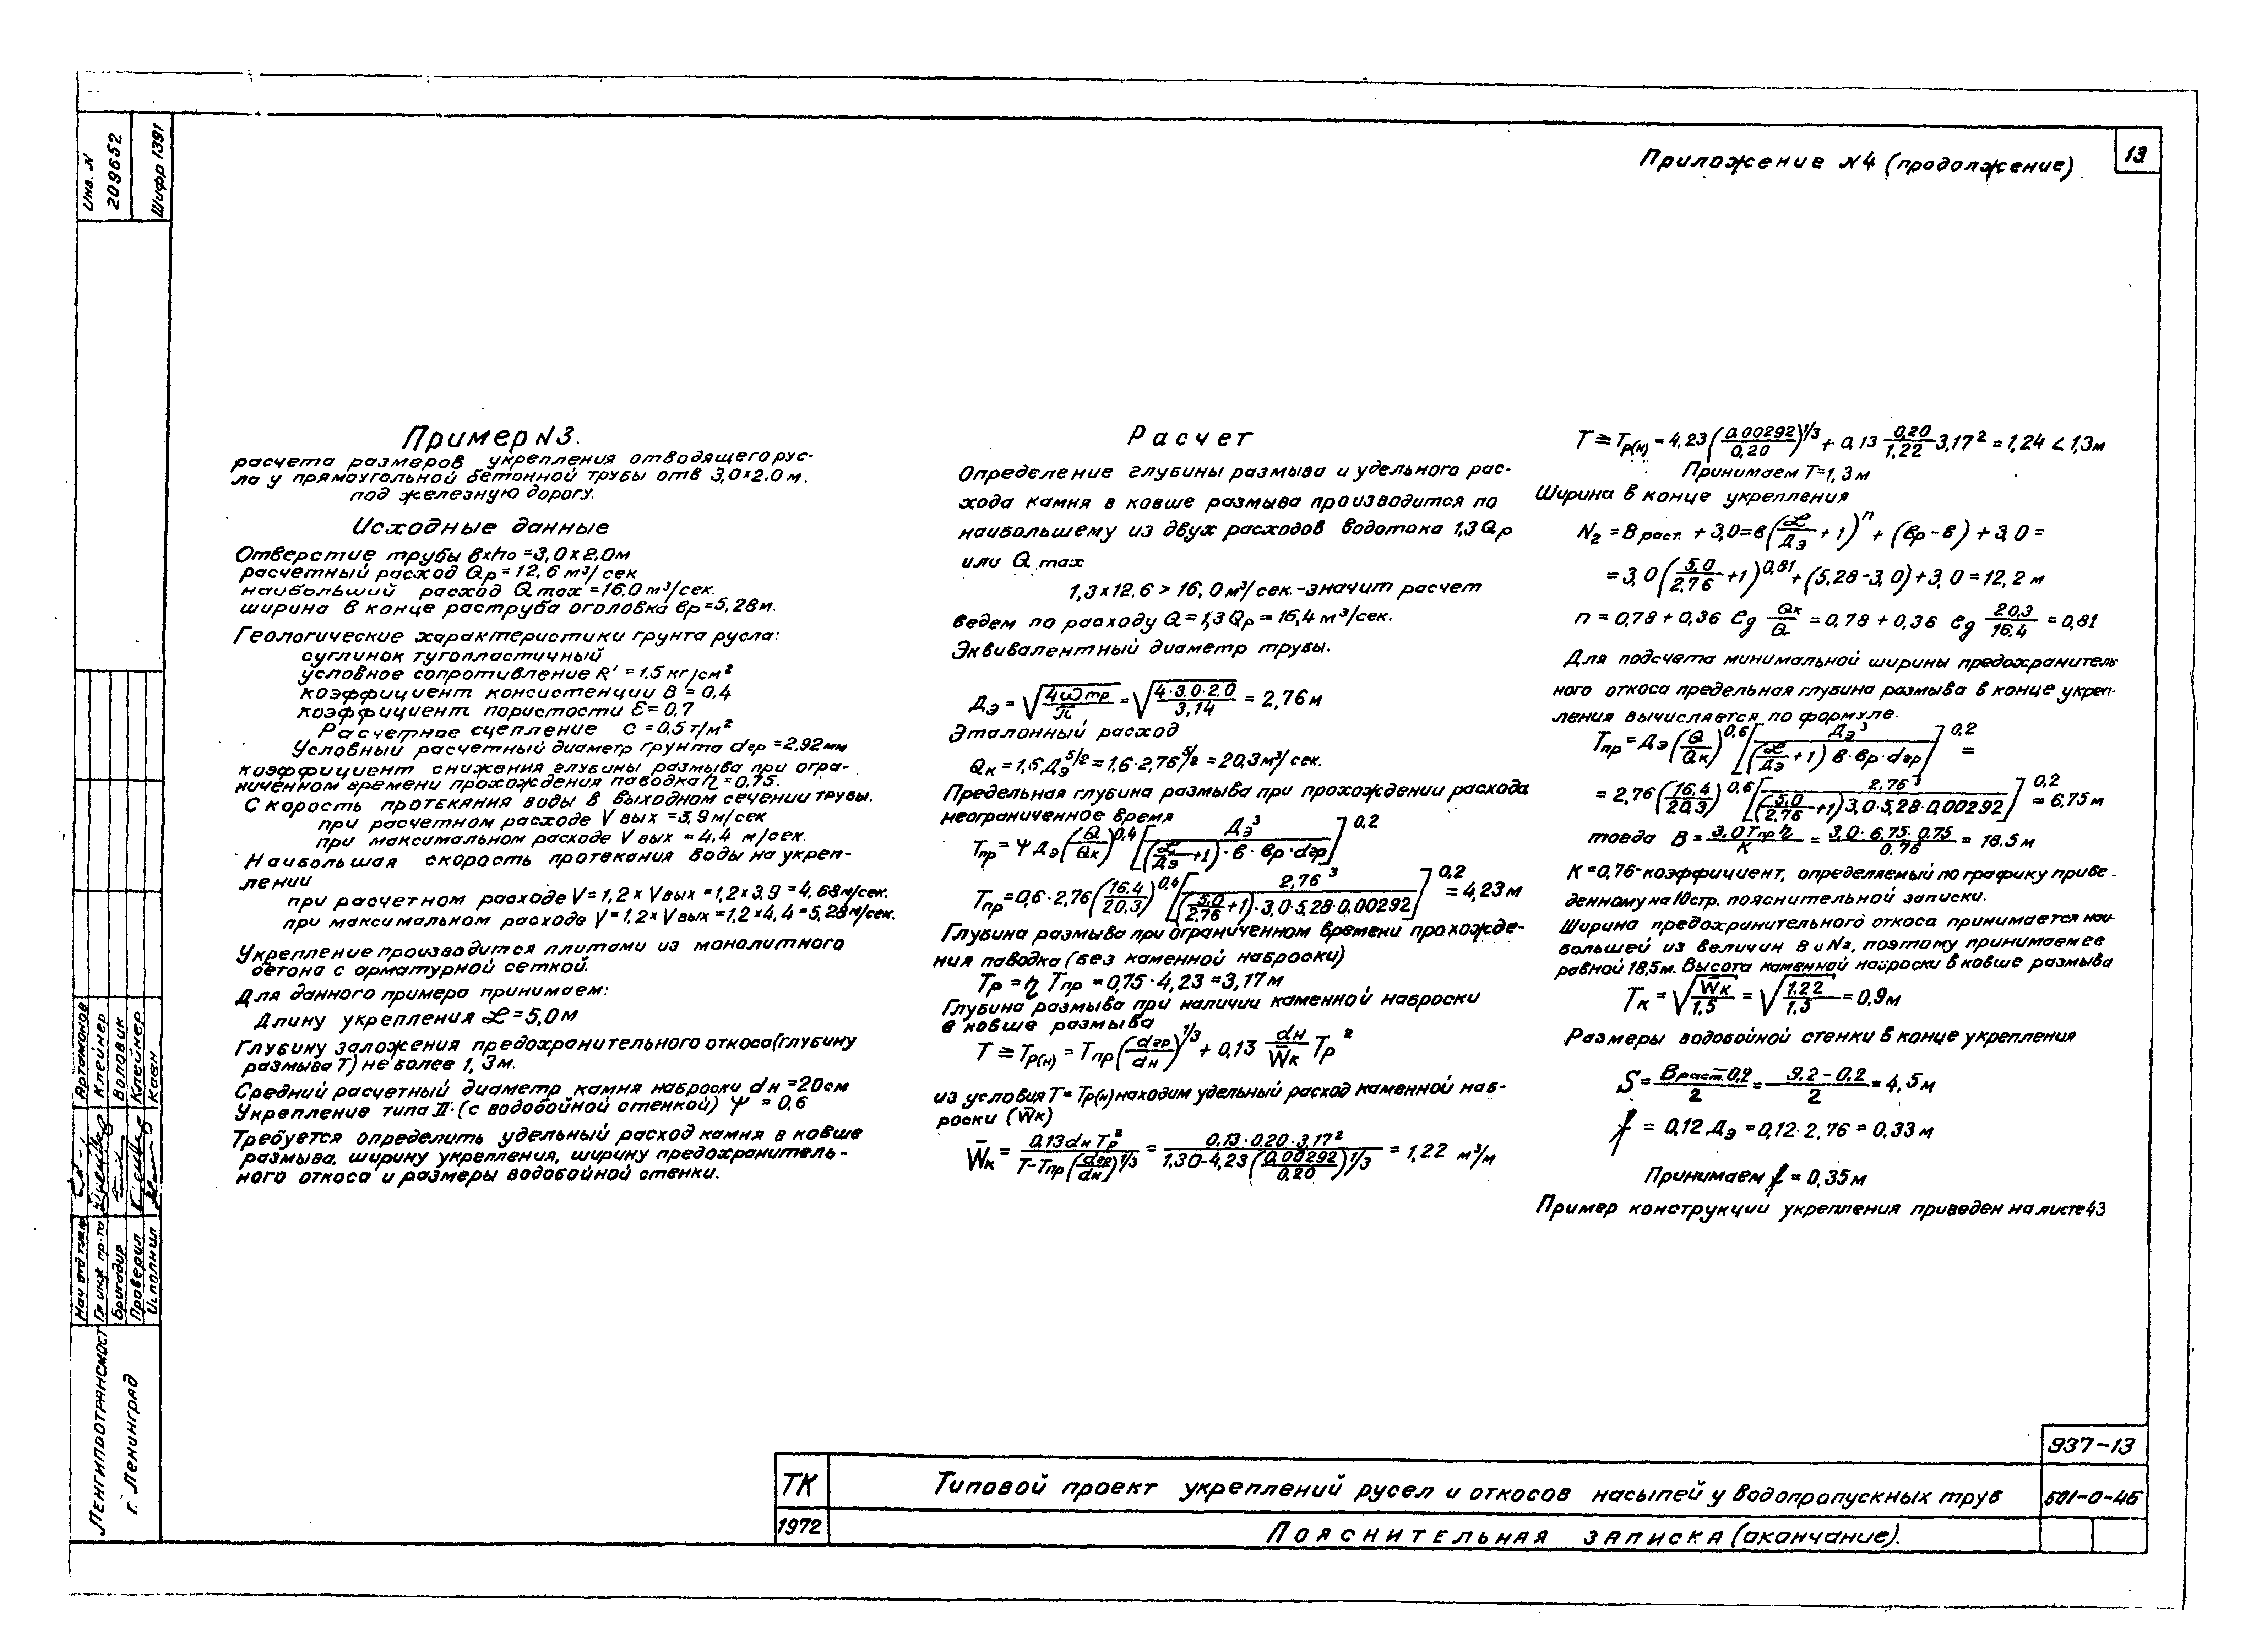 Приложение N4 (продолжение)
13
Инв. N
209652
Шифр 1391
Пример N3.
расчета размеров укрепления отводящего рус-
ла у прямоугольной бетонной трубы отв 3,0×2,0 м.
под железную дорогу.
Исходные данные
Отверстие трубы в×hо = 3,0×2,0м
расчетный расход Qр = 12,6 м³/сек
наибольший расход Q max = 16,0 м³/сек.
ширина в конце раструба оголовка вр = 5,28м.
Геологические характеристики грунта русла:
суглинок тугопластичный
условное сопротивление R' = 1.5 кг/см²
коэффициент консистенции В = 0,4
коэффициент пористости Ɛ = 0,7
Расчетное сцепление С = 0,5 т/м²
Условный расчетный диаметр грунта dгр = 2,92 мм
коэффициент снижения глубины размыва при огра-
ниченном времени прохождения паводка η = 0,75.
Скорость протекания воды в выходном сечении трубы.
при расчетном расходе V вых = 3,9 м/сек
при максимальном расходе V вых = 4,4 м/сек.
Наибольшая скорость протекания воды на укреп-
лении
при расчетном расходе V = 1,2 × Vвых = 1,2×3,9 = 4,68м/сек.
при максимальном расходе V = 1,2 × Vвых = 1,2×4,4 = 5,28 м/сек.
Укрепление производится плитами из монолитного
бетона с арматурной сеткой.
Для данного примера принимаем:
Длину укрепления ℒ = 5,0 м
Глубину заложения предохранительного откоса (глубину
размыва Т) не более 1,3м.
Средний расчетный диаметр камня наброски dн = 20см
Укрепление типа II (с водобойной стенкой) Ψ = 0,6
Требуется определить удельный расход камня в ковше
размыва, ширину укрепления, ширину предохранитель-
ного откоса и размеры водобойной стенки.
Расчет
Определение глубины размыва и удельного рас-
хода камня в ковше размыва производится по
наибольшему из двух расходов водотока 1,3 Qр
или Q max
1,3×12,6 > 16,0 м³/сек.-значит расчет
ведем по расходу Q = 1,3 Qр = 16,4 м³/сек.
Эквивалентный диаметр трубы.
Дэ = √(4ωтр/π) = √(4·3,0·2,0/3,14) = 2,76 м
Эталонный расход
Qк = 1,6 Дэ^5/2 = 1,6·2,76^5/2 = 20,3 м³/сек.
Предельная глубина размыва при прохождении расхода
неограниченное время
Тпр = Ψ Дэ (Q/Qк)^0,4 [Дэ³/((ℒ/Дэ + 1)·в·вр·dгр)]^0.2
Тпр = 0,6·2,76 (16.4/20,3)^0,4 [2,76³/((5.0/2,76 + 1)·3,0·5,28·0,00292)]^0.2 = 4,23 м
Глубина размыва при ограниченном времени прохожде-
ния паводка (без каменной наброски)
Тр = η Тпр = 0,75·4,23 = 3,17 м
Глубина размыва при наличии каменной наброски
в ковше размыва
Т ≥ Тр(н) = Тпр (dгр/dн)^1/3 + 0,13 dн/W̄к Тр²
из условия Т = Тр(н) находим удельный расход каменной наб-
роски (W̄к)
W̄к = 0,13dн Тр²/(Т-Тпр(dгр/dн)^1/3) = 0,13·0,20·3,17²/(1,30-4,23(0,00292/0,20)^1/3) = 1,22 м³/м
Т ≥ Тр(н) = 4,23 (0,00292/0,20)^1/3 + 0,13 0,20/1,22 3,17² = 1,24 < 1,3м
Принимаем Т = 1,3 м
Ширина в конце укрепления
N₂ = В раст. + 3,0 = в (ℒ/Дэ + 1)^n + (вр - в) + 3,0 =
= 3,0 (5,0/2,76 + 1)^0,81 + (5,28-3,0) + 3,0 = 12,2 м
n = 0,78 + 0,36 ℓg Qк/Q = 0,78 + 0,36 ℓg 20,3/16.4 = 0,81
Для подсчета минимальной ширины предохранитель
ного откоса предельная глубина размыва в конце укреп-
ления вычисляется по формуле.
Тпр = Дэ (Q/Qк)^0,6 [Дэ³/((ℒ/Дэ + 1) в·вр·dгр)]^0,2 =
= 2,76 (16,4/20,3)^0,6 [2,76³/((5,0/2,76 + 1) 3,0·5,28·0,00292)]^0,2 = 6,75 м
тогда В = 3,0 Тпр η/К = 3,0·6,75·0,75/0,76 = 18,5 м
К = 0,76-коэффициент, определяемый по графику приве-
денному на 10 стр. пояснительной записки.
Ширина предохранительного откоса принимается наи-
большей из величин В и N₂, поэтому принимаем ее
равной 18,5м. Высота каменной наброски в ковше размыва
Тк = √(W̄к/1,5) = √(1.22/1,5) = 0,9 м
Размеры водобойной стенки в конце укрепления
S = (Враст.-0,2)/2 = (9.2-0.2)/2 = 4,5 м
f = 0,12 Дэ = 0,12·2,76 = 0,33 м
Принимаем f = 0,35 м
Пример конструкции укрепления приведен на листе 43
Нач отд типов
Гл инж. пр-та
Бригадир
Проверил
Исполнил
Артамонов
Клейнер
Воловик
Клейнер
Каган
ЛЕНГИПРОТРАНСМОСТ
г. Ленинград
ТК
1972
Типовой проект укреплений русел и откосов насыпей у водопропускных труб
Пояснительная записка (окончание).
937-13
501-0-46